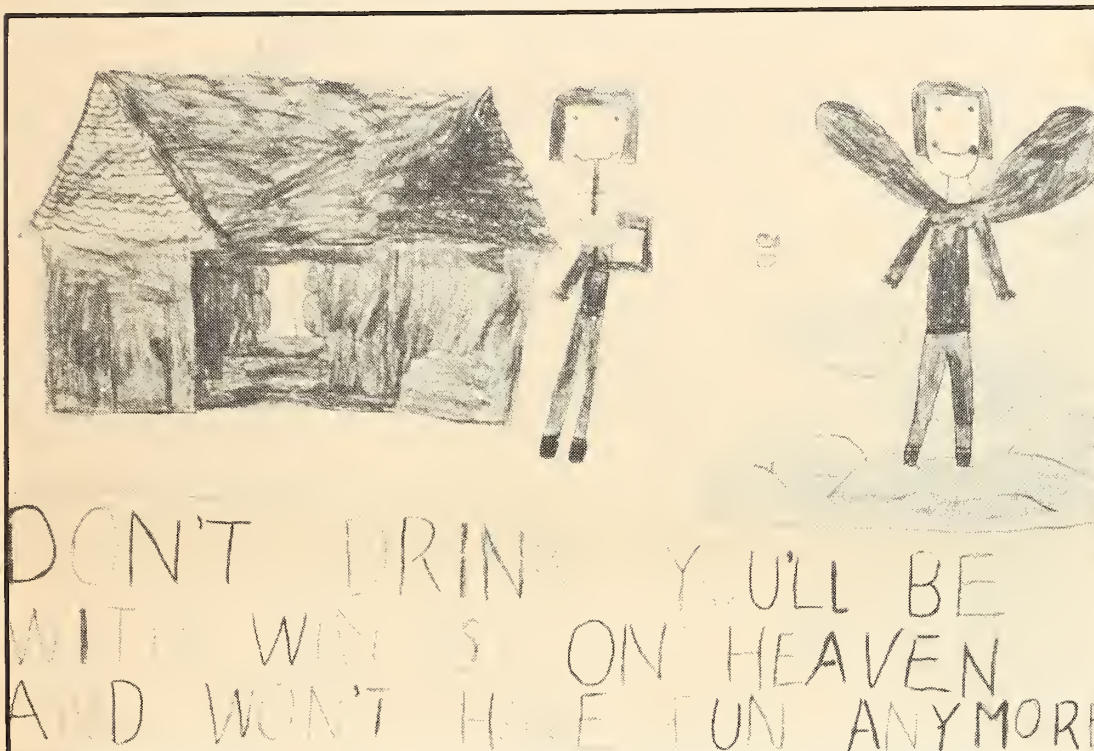 DON'T DRINK YOU'LL BE
WITH WINGS ON HEAVEN
AND WON'T HAVE FUN ANYMORE